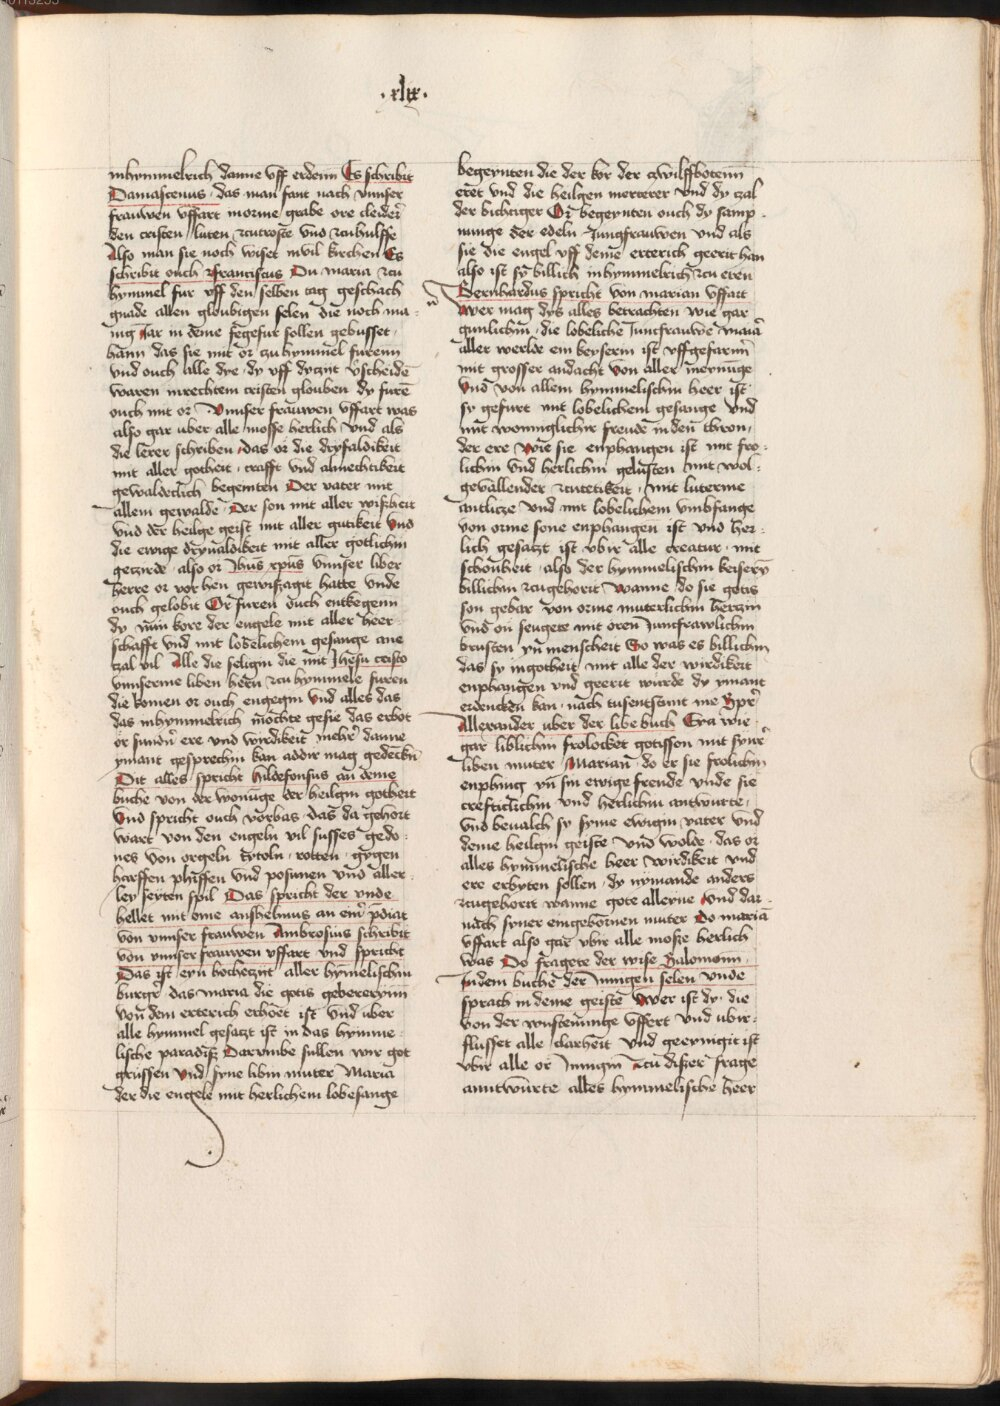 ·xlix·
inhymmelrich danne vff erdenn Es schribit
Damascenus · das man fant nach vnnser
frauwen vffart in orme grabe ore cleider
den cristen luten zcutroste vnd zcuhulffe
Also man sie noch wiset in vil kirchen Es
schribit ouch Franciscus Du maria zcu
hymmel fur vff den selben tag geschach
gnade allen gloubigen selen die noch ma-
nig Jar in deme fegefur sollen gebusset
hann das sie mit or zcu hymmel furenn
vnd ouch alle dye · dy vff dyczyt vscheidē
waren inrechtem cristen glouben dy furē
ouch mit or · Vnnser frauwen vffart was
also gar uber alle mosse herlich · vnd als
die lerer schriben · das or die dryfaldikeit
mit aller gotheit · crafft vnd almechtikeit
gewaldeclich begeinten Der vater mit
allem gewalde · Der son mit aller wißheit
vnd der heilge geist mit aller gutikeit vnd
die ewige dryualdikeit mit aller gotlichin
geczirde · also or Ihūs xpūs vnnser liber
Herre or vorhen gewißagit hatte vnde
ouch gelobit Or furen ouch entkegenn
dy nūin kore der engele mit aller heer-
schafft vnd mit lobelichem gesange ane
czal vil Alle die seligin die mit Jhesu cristo
vnnserme liben hern zcu hymmele furen
die komen or ouch engegin vnd alles das
das inhymmelrich mochte gesie das erbot
or sundr ere vnd wirdikeit mehr danne
ymant gesprechin kan addir mag gedeckn
Dit alles spricht hildefonsus an deme
buche von der wonūge der heilgin gotheit
vnd spricht ouch vorbas · das da gehort
wart von den engeln vil susses gedo-
nes von orgeln cytoln · rotten · gygen
harffen phiffen vnd posunen vnd aller-
ley seyten spil Das spricht der vnde
hellet mit ome anshelmus an eim p̄diat
von vnnser frauwen Ambrosius schribit
von vnnser frauwen vffart vnd spricht
Das ist eyn hochczyt aller hymelischin
burgr · das maria die gotis gebererynn
von dem erterich erhoet ist vnd uber
alle hymmel gesaczt ist in das hymme-
lische paradiß Darvmbe sullen wir got
grussen vnd syne libin muter Maria
der die engele mit herlichem lobesange
begeynten die der kor der czwulffbotenn
eret vnd die heilgen merterer vnd dy czal
der bichtiger Or begeynten ouch dy samp-
nunge der edeln Jungfrauwen vnd als
sie die engel vff deme erterich geerit han
also ist sy billich inhymmelrich zcu eren
Bernhardus spricht von marian vffart
Wer mag dys alles betrachten wie gar
gunlichin · die lobeliche Juncfrauwe maria
aller werlde ein keyserin ist vffgefarin
mit grosser andacht von aller meynūge
vnd von allem hymmelischin heer ist
sy gefurt mit lobelichem gesange vnd
mit wonniglichir freude in den thron
der ere Wie sie enphangen ist mit fro-
lichin vnd herlichin gelusten mit wol-
gevallender zcutetikeit · mit luterme
antlicze vnd mit lobelichem vmbfange
von orme sone enphangen ist vnd her-
lich gesaczt ist vbir alle creatur · mit
schonheit · also der hymmelischin keiserȳ
billichin zcugehorit Wanne · do sie gotis
son gebar von orme muterlichin herczin
vnd on seugete mit oren Juncfrawlichin
brusten yn menscheit So was es billichin
das sy in gotheit mit alle der wirdikeit
enphangen vnd geerit wurde dy ymant
erdencken kan · nach tusentstunt me Spr
Allexander uber der libe buch Eya wie
gar liblichin frolocket gotisson mit synr
liben muter Marian do er sie frolichin
enphing yn sin ewige freude vnde sie
crefticlichin vnd herlichin antwurte
vnd beualch sy syme ewigin vater vnd
deme heilgin geiste vnd wolde · das or
alles hymmelische heer wirdikeit vnd
ere erbyten sollen · dy nymande anders
zcugehorit wanne gote alleyne vnd dar-
nach syner eingebornen muter Do mariā
vffart also gar vbir alle moße herlich
was Do fragete der wise Salomonn ·
in dem buche der Innigen selen vnde
sprach in deme geiste Wer ist dy · die
von der wustenunge vffert vnd ubir-
flusset alle clarheit vnd geeynigit ist
vbir alle or Innigin Zcu dißer frage
anntwurte alles hymmelische heer